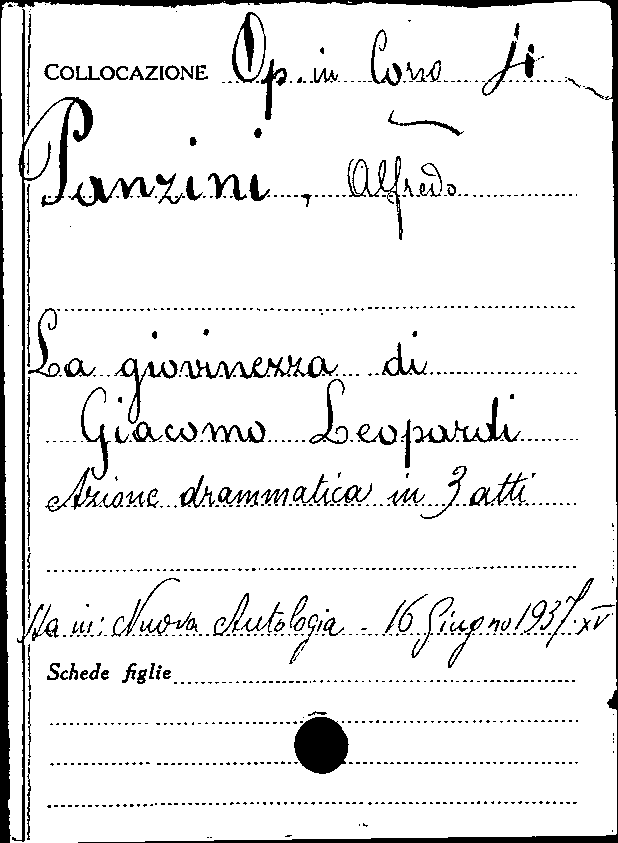 COLLOCAZIONE Op. in Corso
Panzini, Alfredo
La giovinezza di
Giacomo Leopardi
Azione drammatica in 3 atti
Sta in: Nuova Antologia - 16 Giugno 1937. XV
Schede figlie